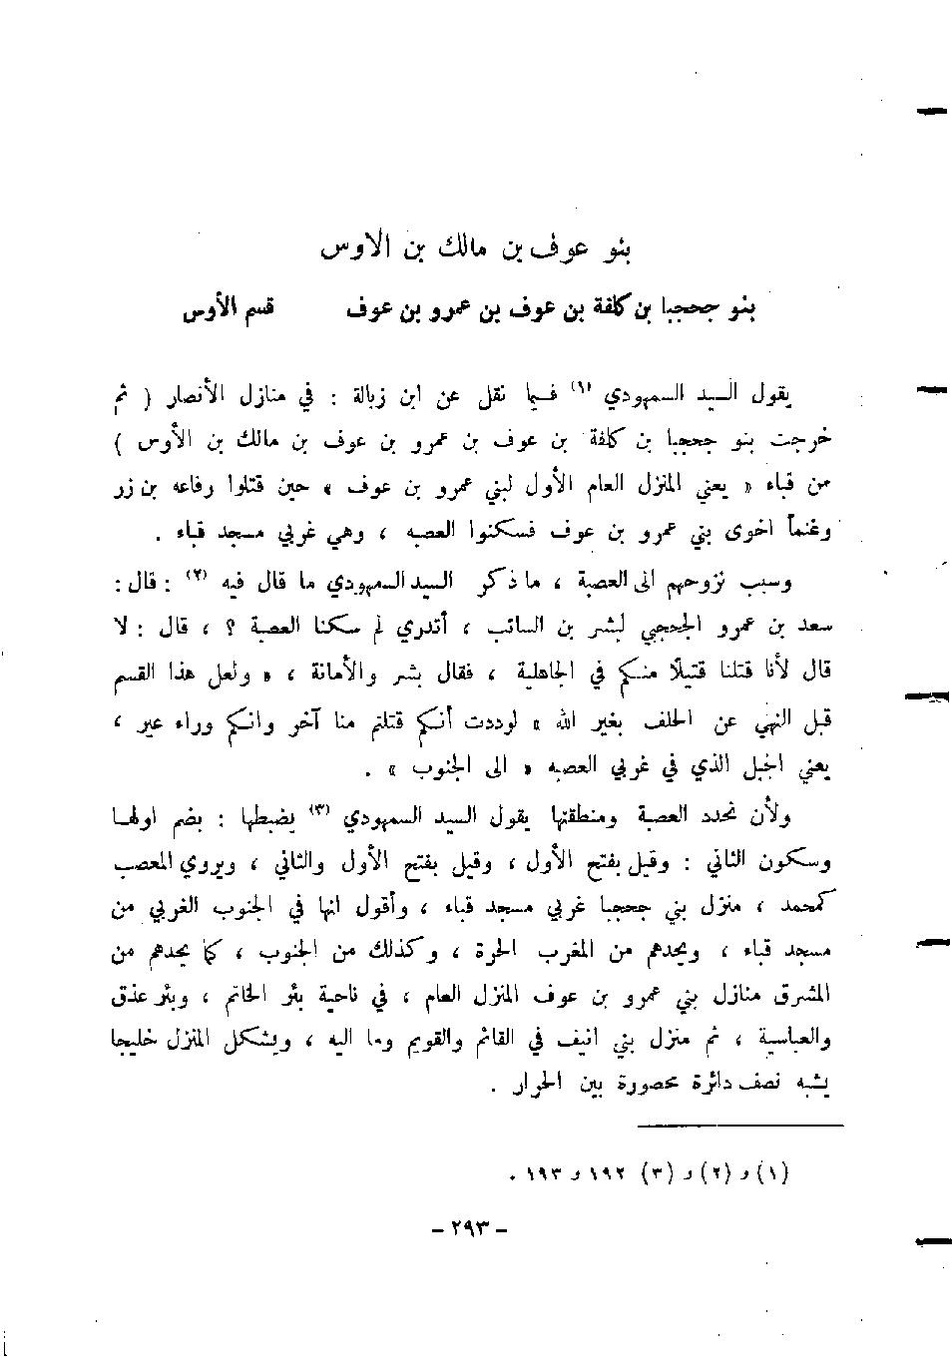 بنو عوف بن مالك بن الاوس
بنو جحجبا بن كلفة بن عوف بن عمرو بن عوف قسم الأوس
يقول السيد السمهودي (١) فيما نقل عن ابن زبالة : في منازل الأنصار ( ثم
خرجت بنو جحجبا بن كلفة بن عوف بن عمرو بن عوف بن مالك بن الأوس )
من قباء « يعني المنزل العام الأول لبني عمرو بن عوف » حين قتلوا رفاعه بن زر
وغنماً اخوى بني عمرو بن عوف فسكنوا العصبه ، وهي غربي مسجد قباء .
وسبب نزوحهم الى العصبة ، ما ذكر السيد السمهودي ما قال فيه (٢) : قال :
سعد بن عمرو الجحجبي لبشر بن السائب ، أتدري لم سكنا العصبة ؟ ، قال : لا
قال لأنا قتلنا قتيلًا منكم في الجاهلية ، فقال بشر والأمانة ، « ولعل هذا القسم
قبل النهي عن الحلف بغير الله » لوددت أنكم قتلتم منا آخر وانكم وراء عير ،
يعني الجبل الذي في غربي العصبه « الى الجنوب » .
ولأن نحدد العصبة ومنطقتها يقول السيد السمهودي (٣) يضبطها : بضم اولها
وسكون الثاني : وقيل بفتح الأول ، وقيل بفتح الأول والثاني ، ويروي المعصب
كمحمد ، منزل بني جحجبا غربي مسجد قباء ، وأقول انها في الجنوب الغربي من
مسجد قباء ، ويحدهم من المغرب الحرة ، وكذلك من الجنوب ، كما يحدهم من
المشرق منازل بني عمرو بن عوف المنزل العام ، في ناحية بئر الخاتم ، وبئر عذق
والعباسية ، ثم منزل بني انيف في القائم والقويم وما اليه ، ويشكل المنزل خليجا
يشبه نصف دائرة محصورة بين الحرار .
(١) و (٢) و (٣) ١٩٢ و ١٩٣ .
- ٢٩٣ -